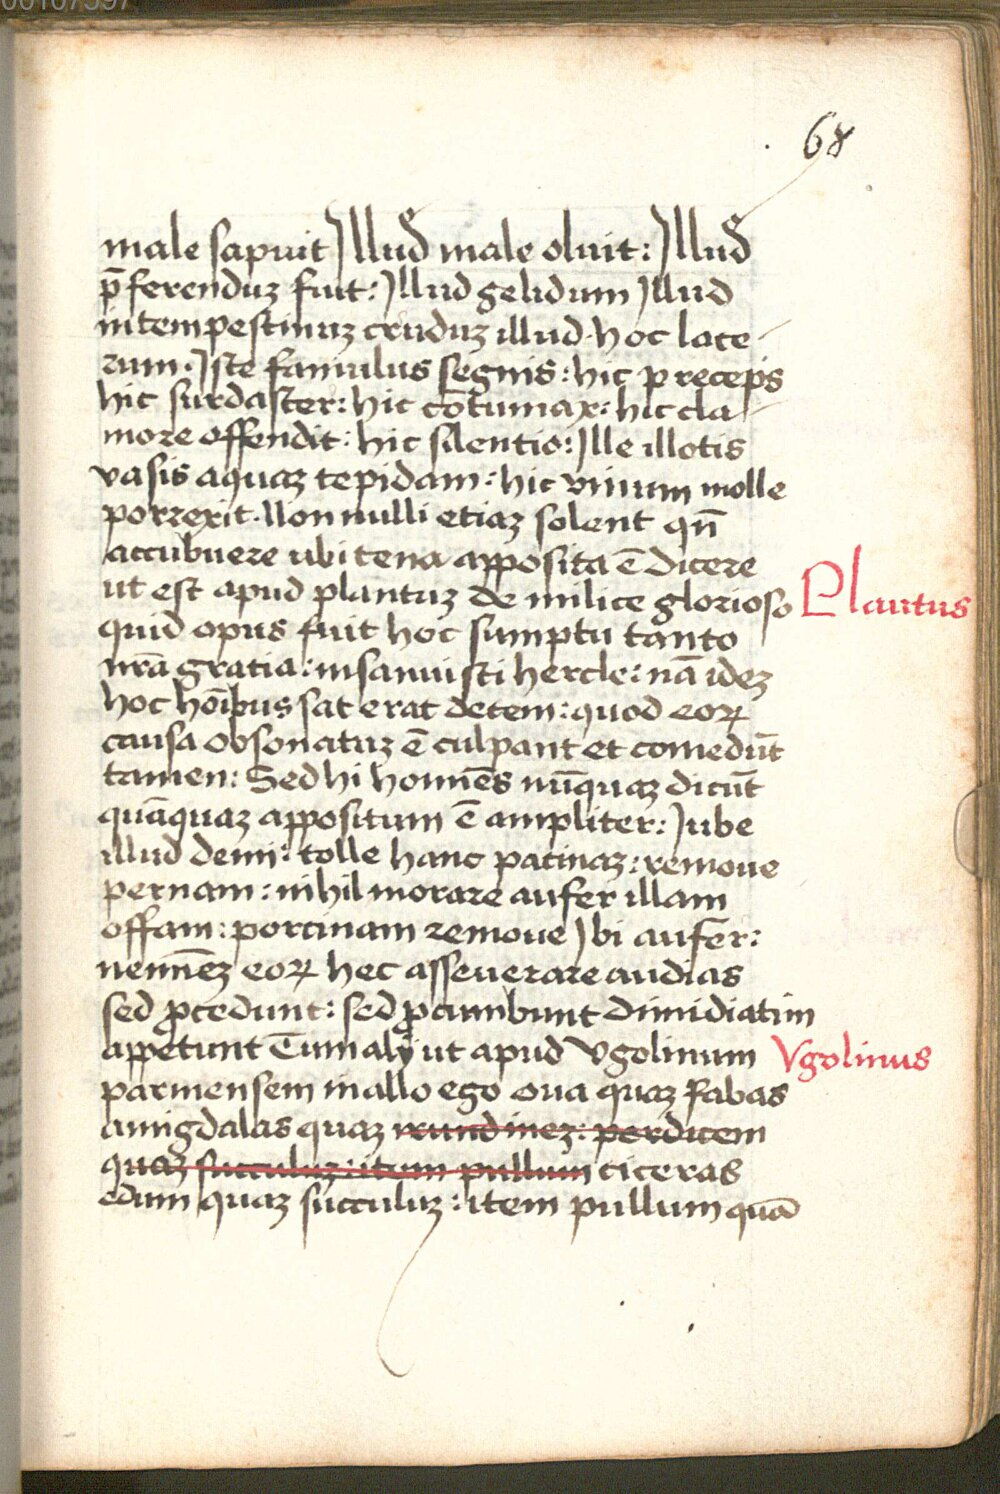 00107597
68
male sapuit Illud male oluit: Illud
p̄ferenduz fuit: Illud gelidum Illud
intempestiuuz cruduz illud hoc lace-
rum. Iste famulus segnis: hic preceps
hic surdaster: hic cōtumax: hic cla-
more offendit: hic silentio: Ille illotis
vasis aquaz tepidam: hic vinum molle
porrexit. Nonnulli etiaz solent qn̄
accubuere ubi cena apposita ē dicere
ut est apud plautuz de milice glorioso
Plautus
quid opus fuit hoc sumptu tanto
nrā gratia: insanuisti hercle: nā idez
hoc hoībus sat erat decem: quod eoꝝ
causa obsonatuz ē culpant et comedūt
tamen: Sed hi homēs nūquaz dicūt
quāquaz appositum ē ampliter: Iube
illud demi: tolle hanc patinaz: remoue
pernam: nihil morare aufer illam
offam: porcinam remoue Ibi aufer:
neminēz eoꝝ hec asseuerare audias
sed ꝓcedunt: sed ꝓcumbunt dimidiatim
appetunt Tum alij ut apud Vgolinum
Vgolinus
parmensem mallo ego oua quaz fabas
amigdalas quaz perdicem
quaz succuluz: item pullum ciceras
edum quaz succuluz: item pullum quā